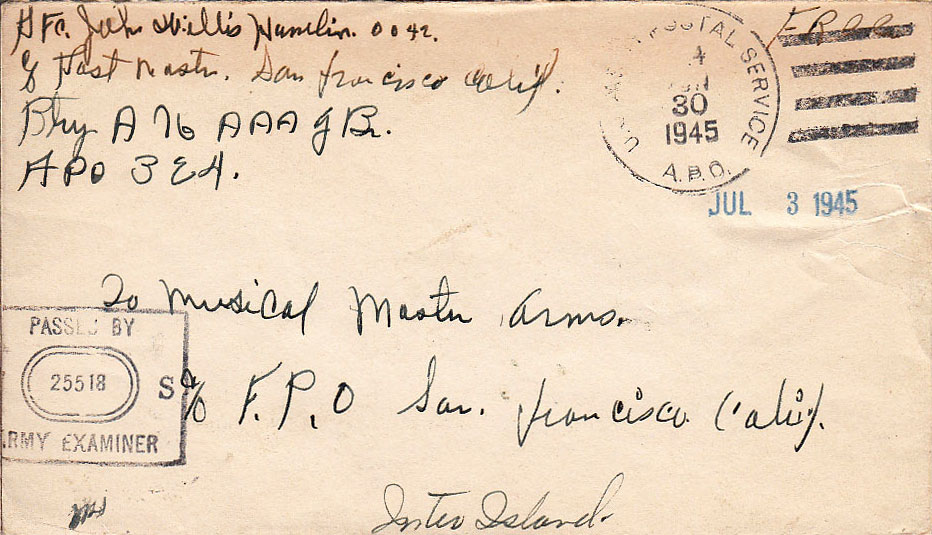 PFC. John Willis Hamlin. 0042.
c/o Post Mastr. San francisco Calif.
Btry A 76 AAA g Bn.
APO 324.
Free
POSTAL SERVICE
4
30
1945
A.P.O.
JUL 3 1945
To Musical Mastr Arms.
c/o F.P.O San. francisco Calif.
PASSED BY
25518 S
ARMY EXAMINER
Inter Island.